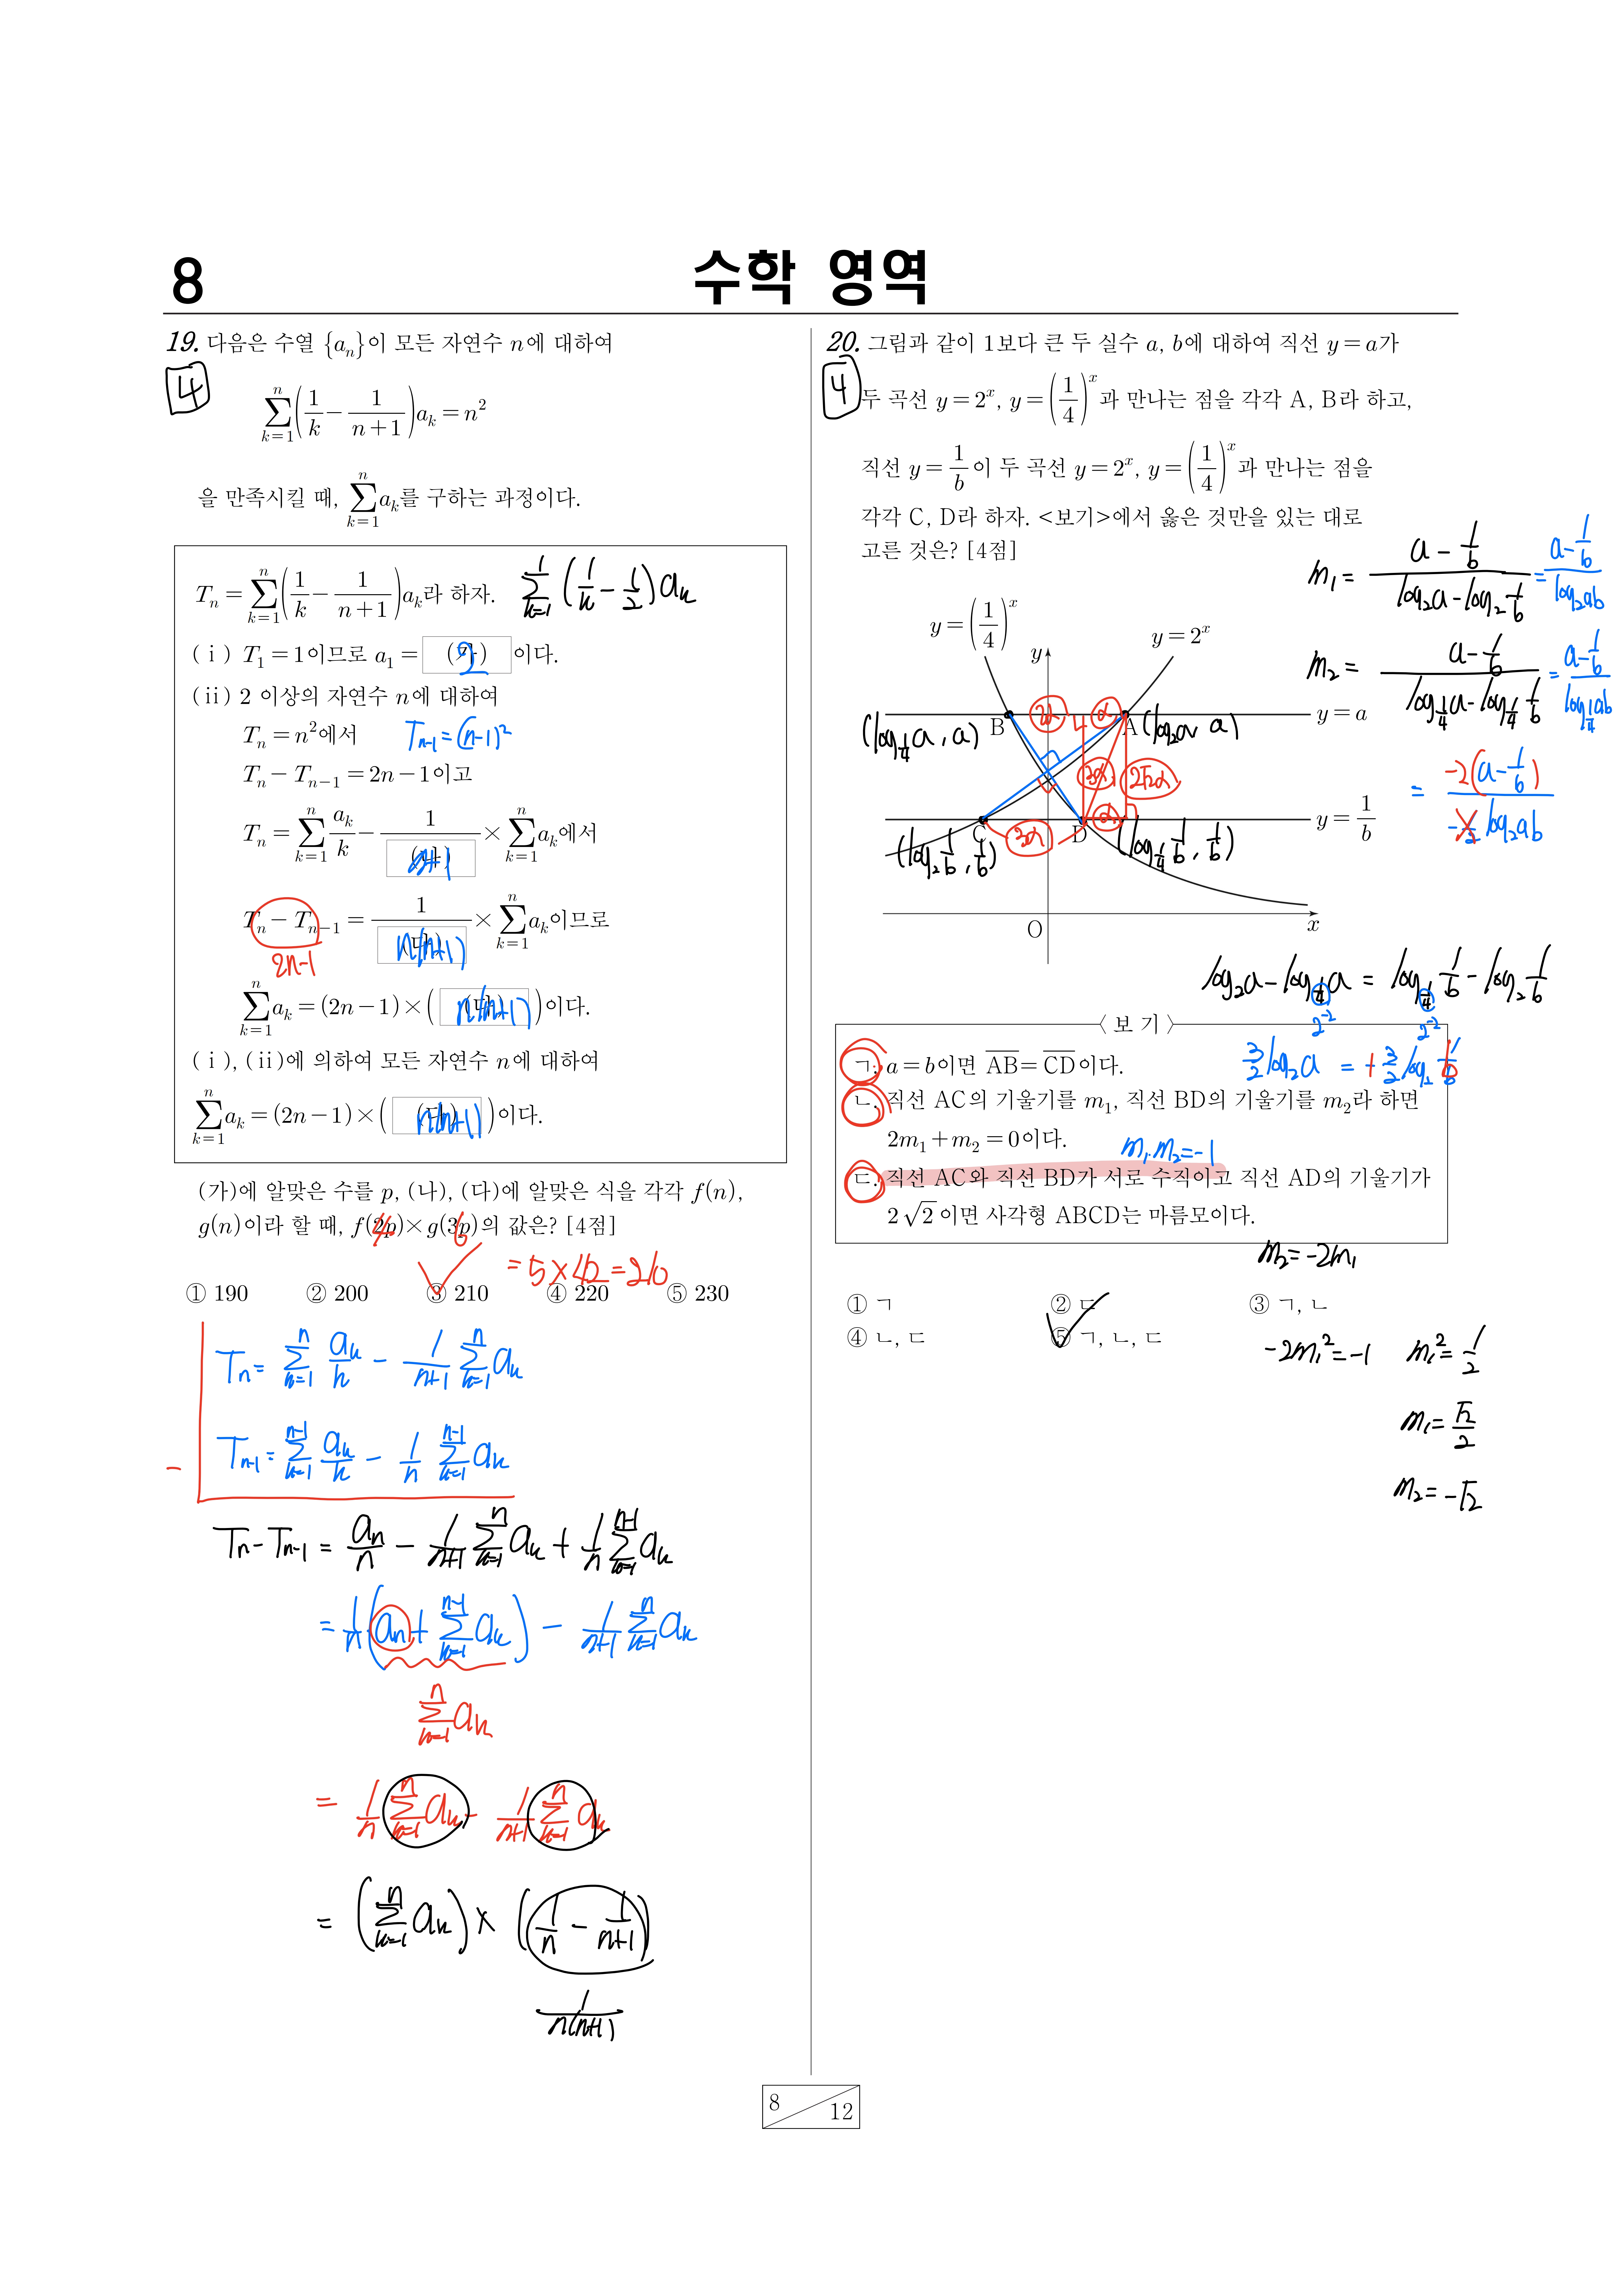 8
수학 영역
19. 다음은 수열 {aₙ}이 모든 자연수 n에 대하여
4
∑_{k=1}^{n} (1/k − 1/(n+1)) aₖ = n²
을 만족시킬 때, ∑_{k=1}^{n} aₖ를 구하는 과정이다.
Tₙ = ∑_{k=1}^{n} (1/k − 1/(n+1)) aₖ라 하자. ∑_{k=1}^{1} (1/k − 1/2) aₖ
(ⅰ) T₁ = 1이므로 a₁ = (가) 2 이다.
(ⅱ) 2 이상의 자연수 n에 대하여
Tₙ = n²에서 Tₙ₋₁ = (n−1)²
Tₙ − Tₙ₋₁ = 2n − 1이고
Tₙ = ∑_{k=1}^{n} aₖ/k − 1/(나) × ∑_{k=1}^{n} aₖ에서
n+1
Tₙ − Tₙ₋₁ = 1/(다) × ∑_{k=1}^{n} aₖ이므로
n(n+1)
2n−1
∑_{k=1}^{n} aₖ = (2n−1) × ( (다) )이다.
n(n+1)
(ⅰ), (ⅱ)에 의하여 모든 자연수 n에 대하여
∑_{k=1}^{n} aₖ = (2n−1) × ( (다) )이다.
n(n+1)
(가)에 알맞은 수를 p, (나), (다)에 알맞은 식을 각각 f(n),
g(n)이라 할 때, f(2p)×g(3p)의 값은? [4점]
4 6
= 5×42 = 210
① 190 ② 200 ③ 210 ④ 220 ⑤ 230
Tₙ = ∑_{k=1}^{n} aₖ/k − 1/(n+1) ∑_{k=1}^{n} aₖ
− Tₙ₋₁ = ∑_{k=1}^{n−1} aₖ/k − 1/n ∑_{k=1}^{n−1} aₖ
Tₙ − Tₙ₋₁ = aₙ/n − 1/(n+1) ∑_{k=1}^{n} aₖ + 1/n ∑_{k=1}^{n−1} aₖ
= 1/n (aₙ + ∑_{k=1}^{n−1} aₖ) − 1/(n+1) ∑_{k=1}^{n} aₖ
∑_{k=1}^{n} aₖ
= 1/n ∑_{k=1}^{n} aₖ − 1/(n+1) ∑_{k=1}^{n} aₖ
= (∑_{k=1}^{n} aₖ) × (1/n − 1/(n+1))
1/(n(n+1))
20. 그림과 같이 1보다 큰 두 실수 a, b에 대하여 직선 y = a가
4
두 곡선 y = 2ˣ, y = (1/4)ˣ과 만나는 점을 각각 A, B라 하고,
직선 y = 1/b이 두 곡선 y = 2ˣ, y = (1/4)ˣ과 만나는 점을
각각 C, D라 하자. <보기>에서 옳은 것만을 있는 대로
고른 것은? [4점]
m₁ = (a − 1/b)/(log₂a − log₂1/b) = (a − 1/b)/(log₂ab)
m₂ = (a − 1/b)/(log_{1/4}a − log_{1/4}1/b) = (a − 1/b)/(log_{1/4}ab)
= −2(a − 1/b)/(−½ log₂ab)
y = (1/4)ˣ
y = 2ˣ
y
(log_{1/4}a, a) B 2α α A (log₂a, a) y = a
3α 2√2α
C 3α D α y = 1/b
(log₂1/b, 1/b) (log_{1/4}1/b, 1/b)
O x
log₂a − log_{1/4}a = log_{1/4}1/b − log₂1/b
2⁻² 2⁻²
<보 기>
3/2 log₂a = + 3/2 log₂ b
ㄱ. a = b이면 AB = CD이다.
ㄴ. 직선 AC의 기울기를 m₁, 직선 BD의 기울기를 m₂라 하면
2m₁ + m₂ = 0이다.
m₁·m₂ = −1
ㄷ. 직선 AC와 직선 BD가 서로 수직이고 직선 AD의 기울기가
2√2이면 사각형 ABCD는 마름모이다.
m₂ = −2m₁
① ㄱ ② ㄷ ③ ㄱ, ㄴ
④ ㄴ, ㄷ ⑤ ㄱ, ㄴ, ㄷ
−2m₁² = −1 m₁² = 1/2
m₁ = √2/2
m₂ = −√2
8
12